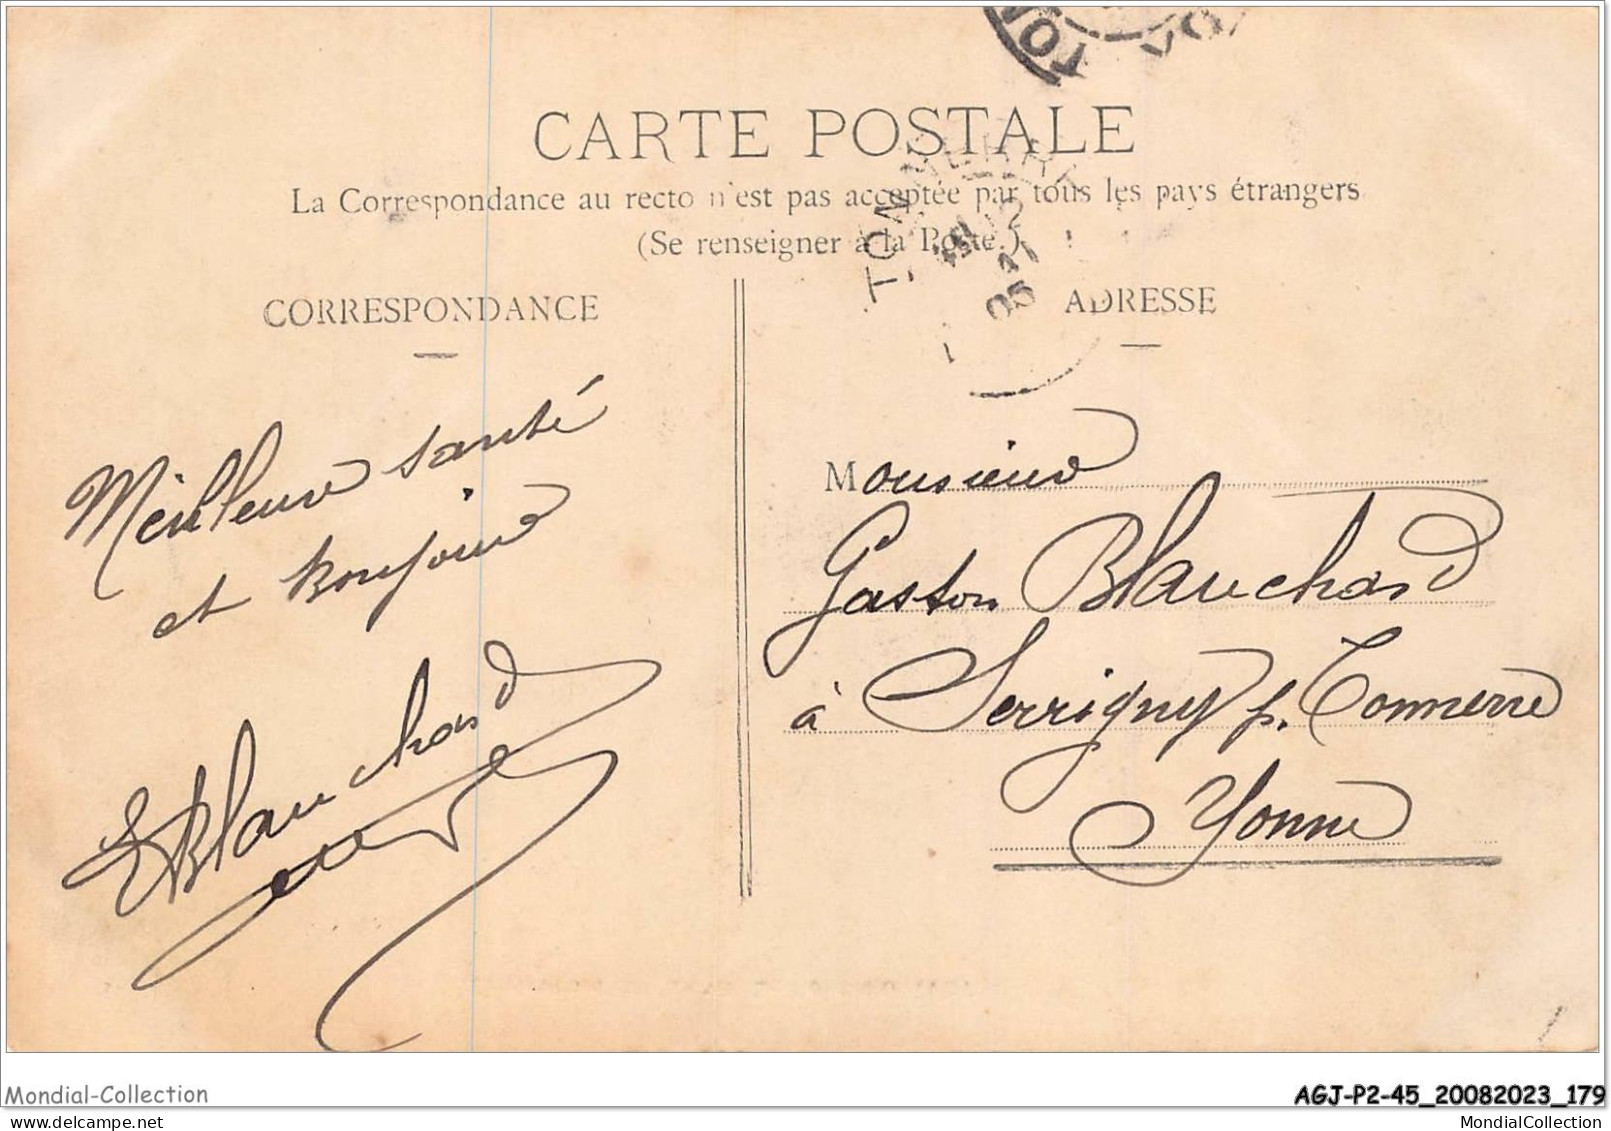 CARTE POSTALE
La Correspondance au recto n'est pas acceptée par tous les pays étrangers
(Se renseigner à la Poste.)
TONNERRE
05
CORRESPONDANCE
Meilleure santé
et bonjour
EBlanchard
ADRESSE
Monsieur
Gaston Blanchard
à Serrigny p. Tonnerre
Yonne
Mondial-Collection
AGJ-P2-45_20082023_179
MondialCollection